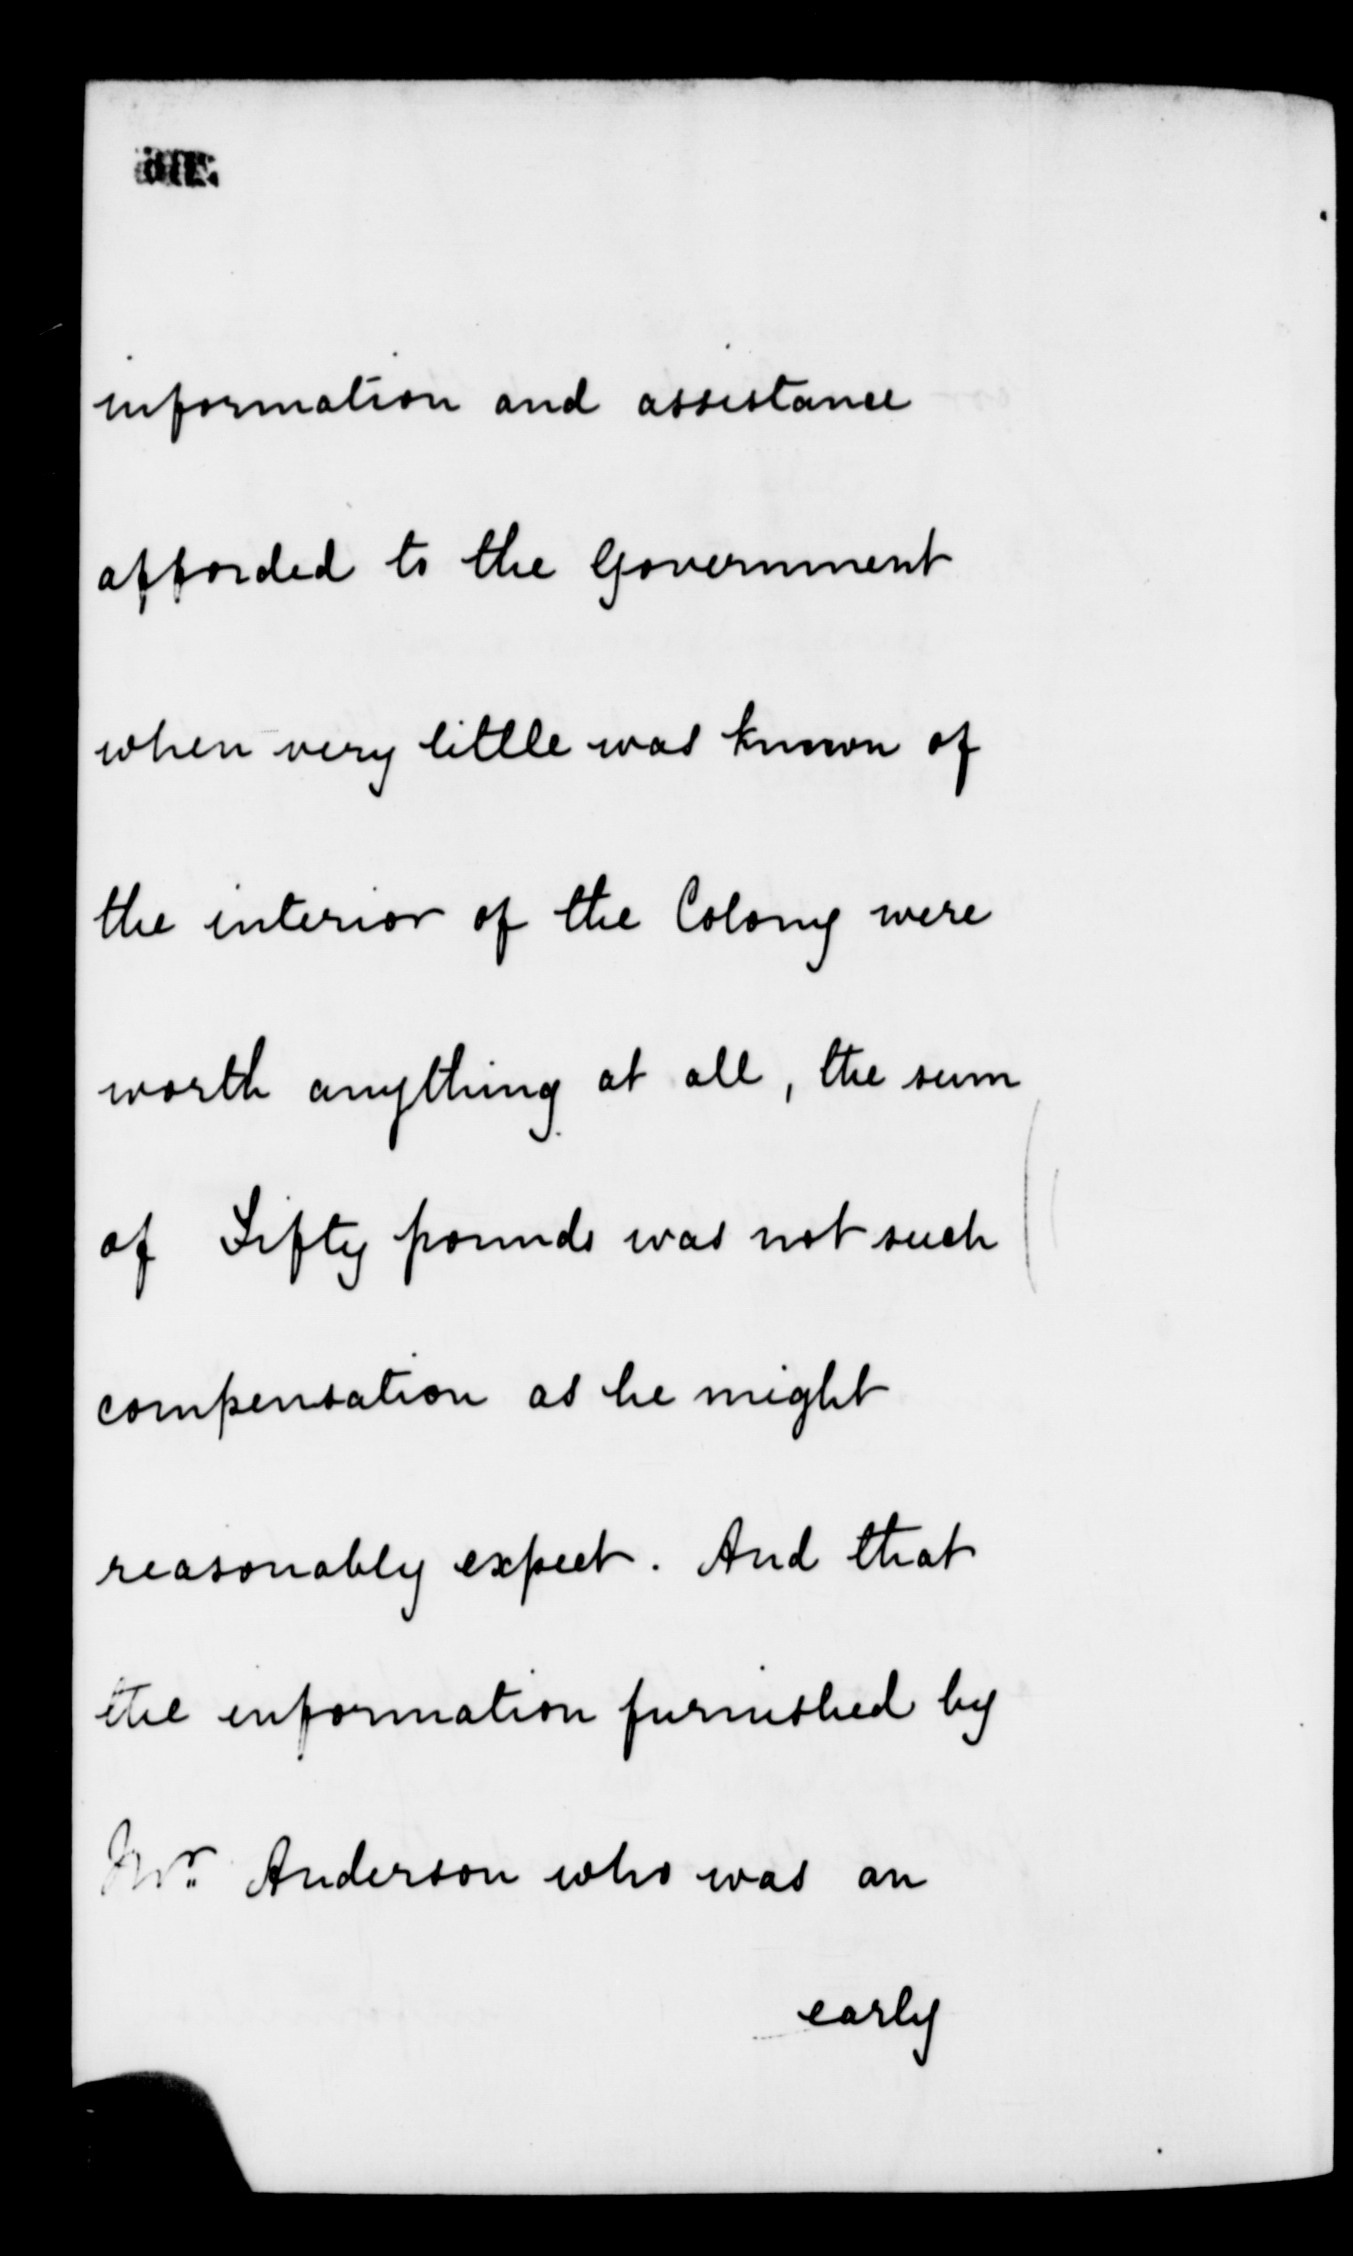 information and assistance
afforded to the Government
when very little was known of
the interior of the Colony were
worth anything at all, the sum
of Fifty pounds was not such
compensation as he might
reasonably expect. And that
the information furnished by
Mr. Anderson who was an
early